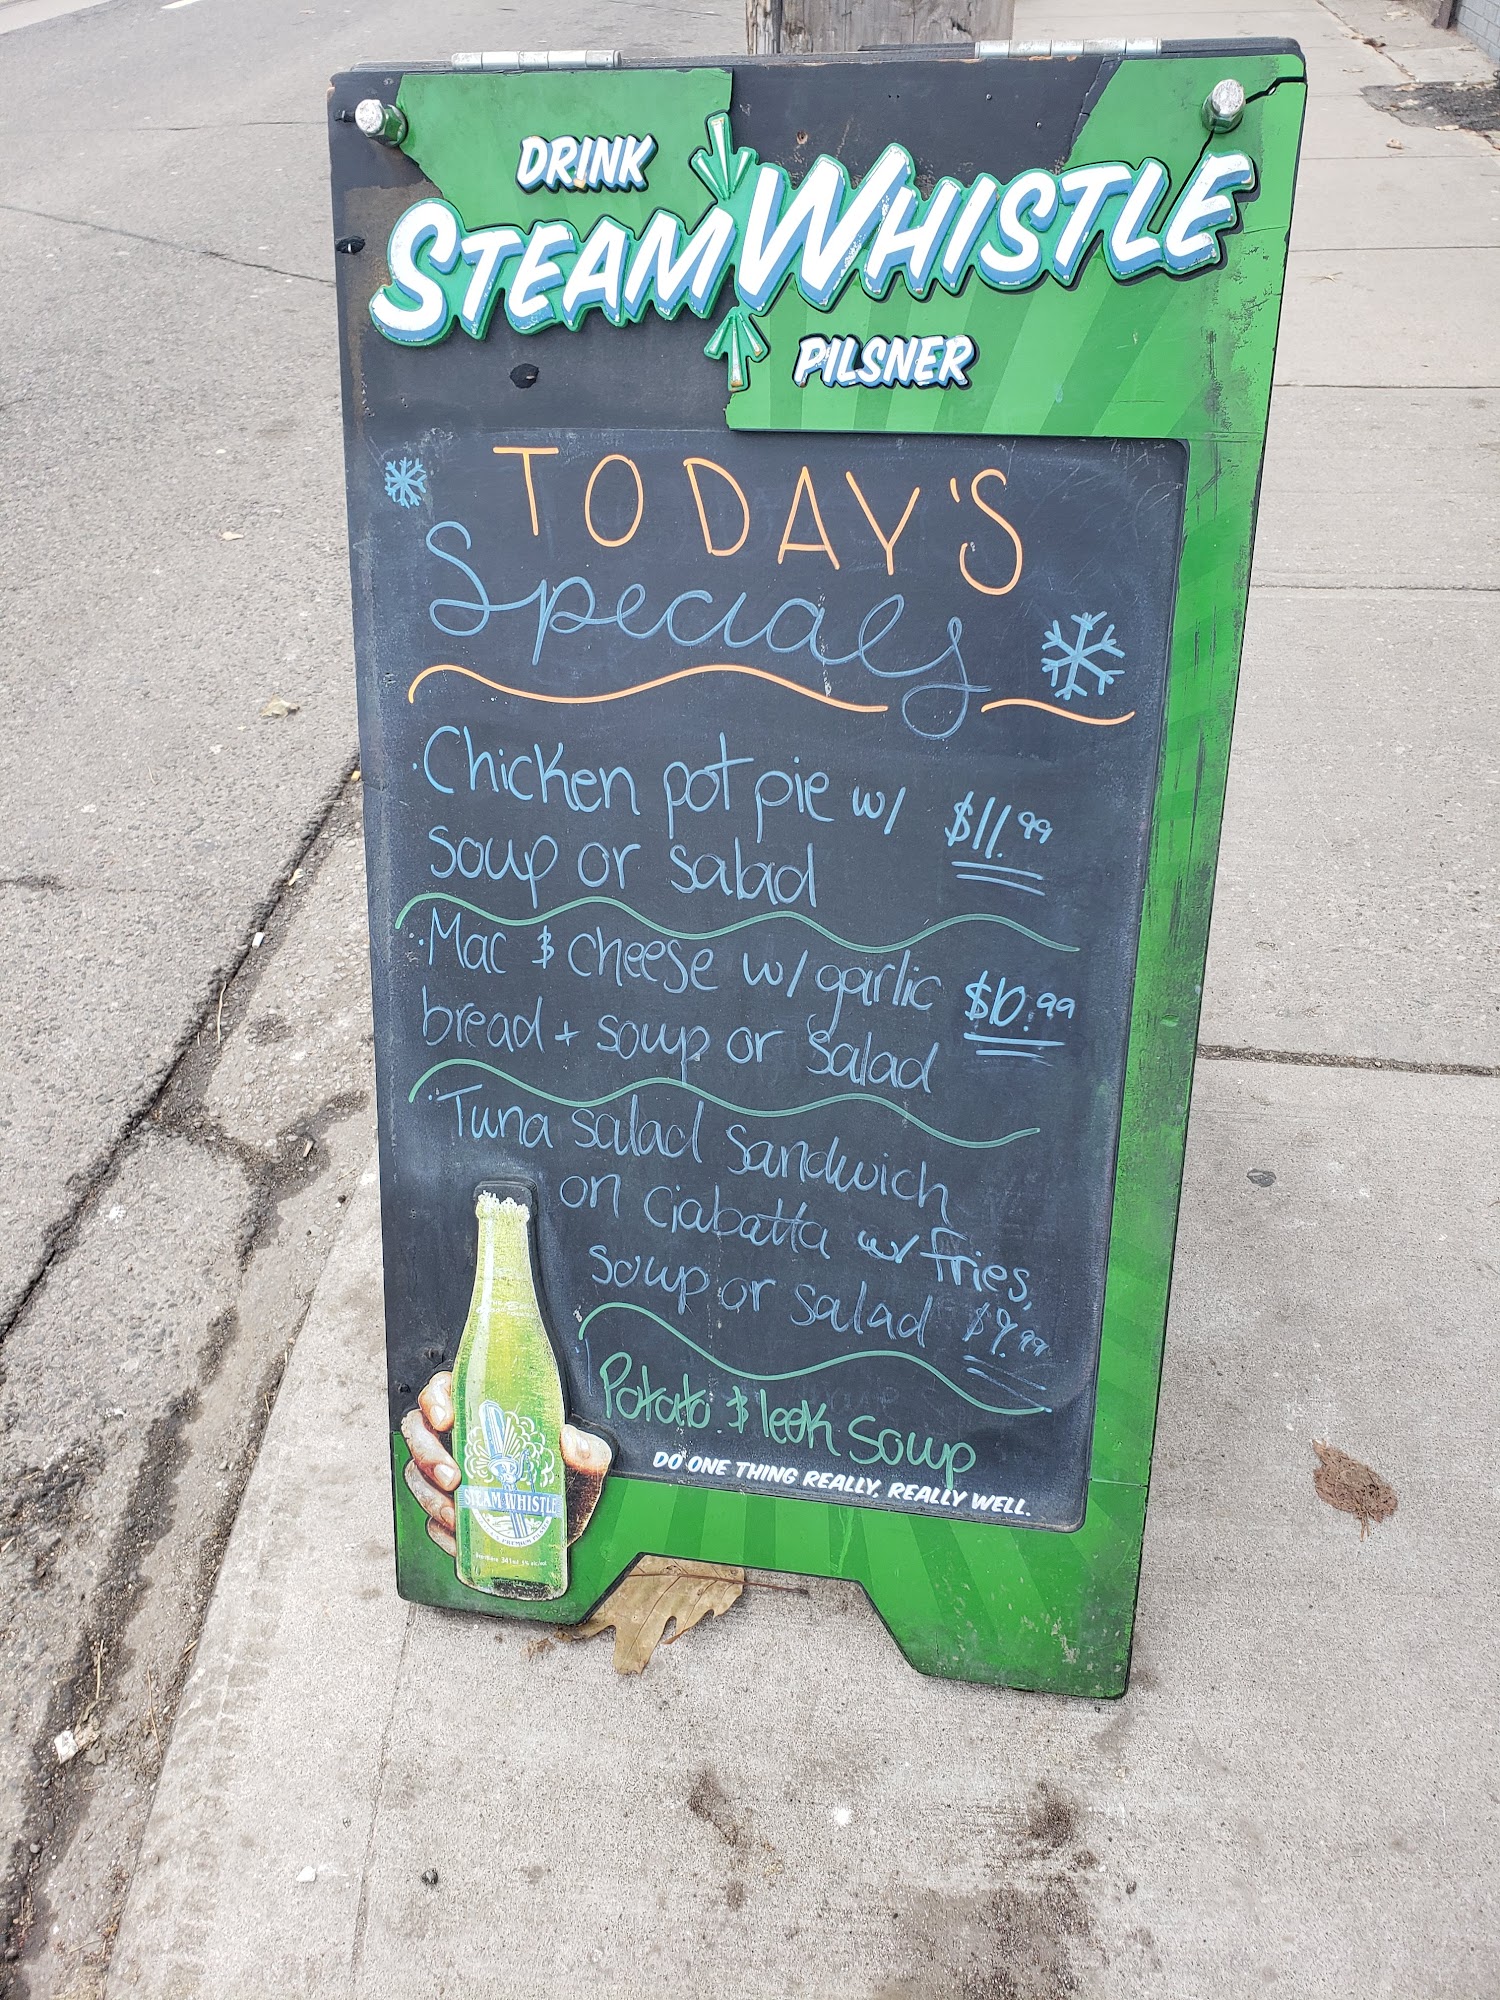 DRINK
STEAM WHISTLE
PILSNER
TODAY'S
Specials
Chicken pot pie w/ $11.99
soup or salad
Mac & cheese w/ garlic $10.99
bread + soup or salad
Tuna salad sandwich
on Ciabatta w/ fries,
soup or salad $9.99
Potato & leek soup
DO ONE THING REALLY, REALLY WELL.
STEAM WHISTLE